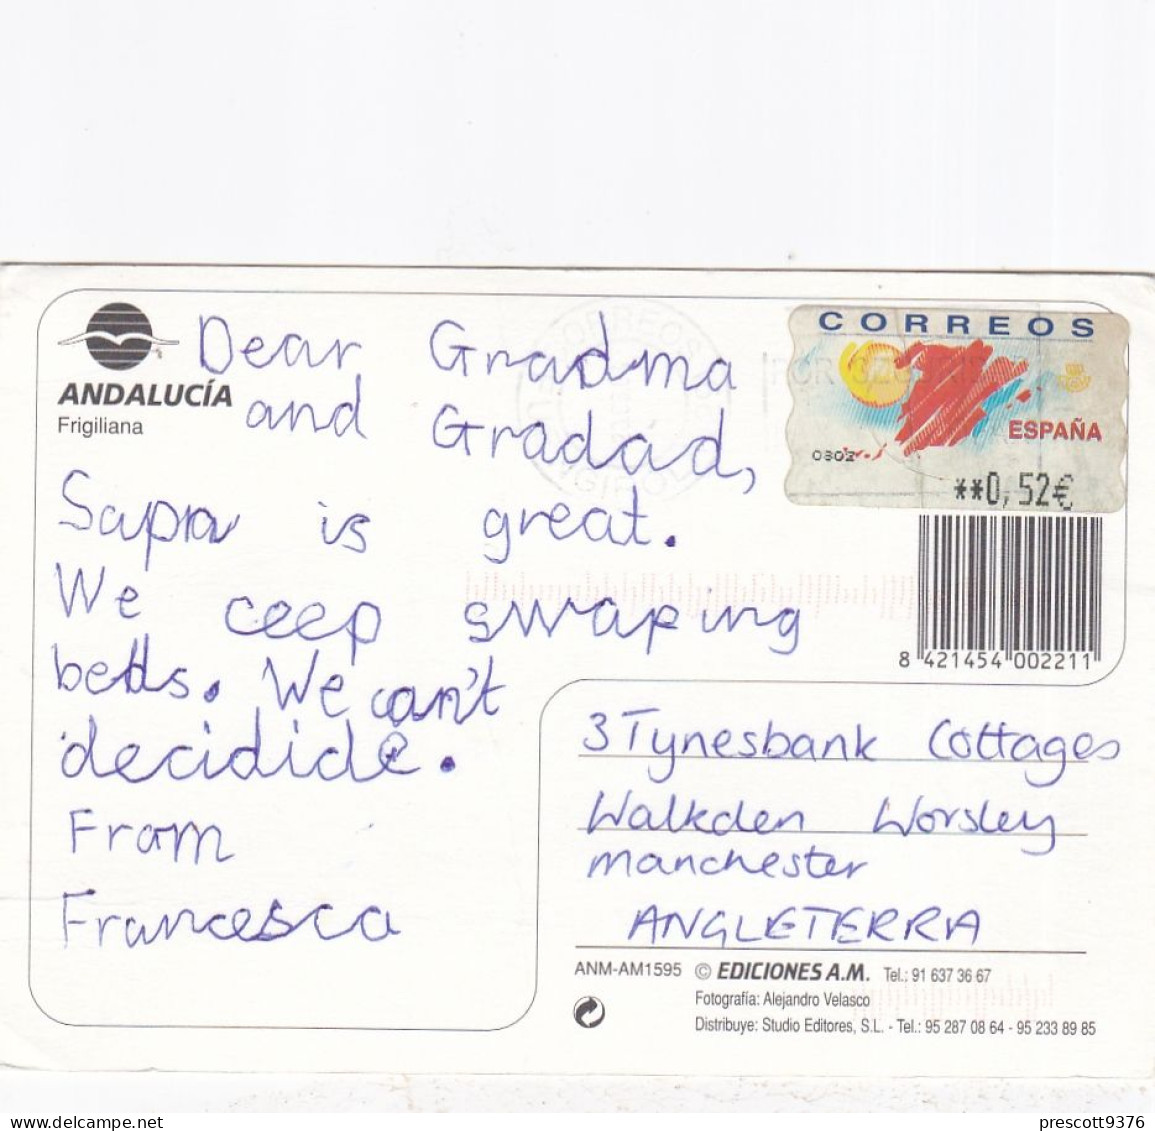 CORREOS
ESPAÑA
0302
**0,52€
ANDALUCÍA
Frigiliana
Dear Gradma
and Gradad,
Sapn is great.
We ceep swaping
betds. We can't
decidide.
From
Francesca
8 421454 002211
3 Tynesbank Cottages
Walkden Worsley
manchester
ANGLETERRA
ANM-AM1595 © EDICIONES A.M. Tel.: 91 637 36 67
Fotografía: Alejandro Velasco
Distribuye: Studio Editores, S.L. - Tel.: 95 287 08 64 - 95 233 89 85
prescott9376